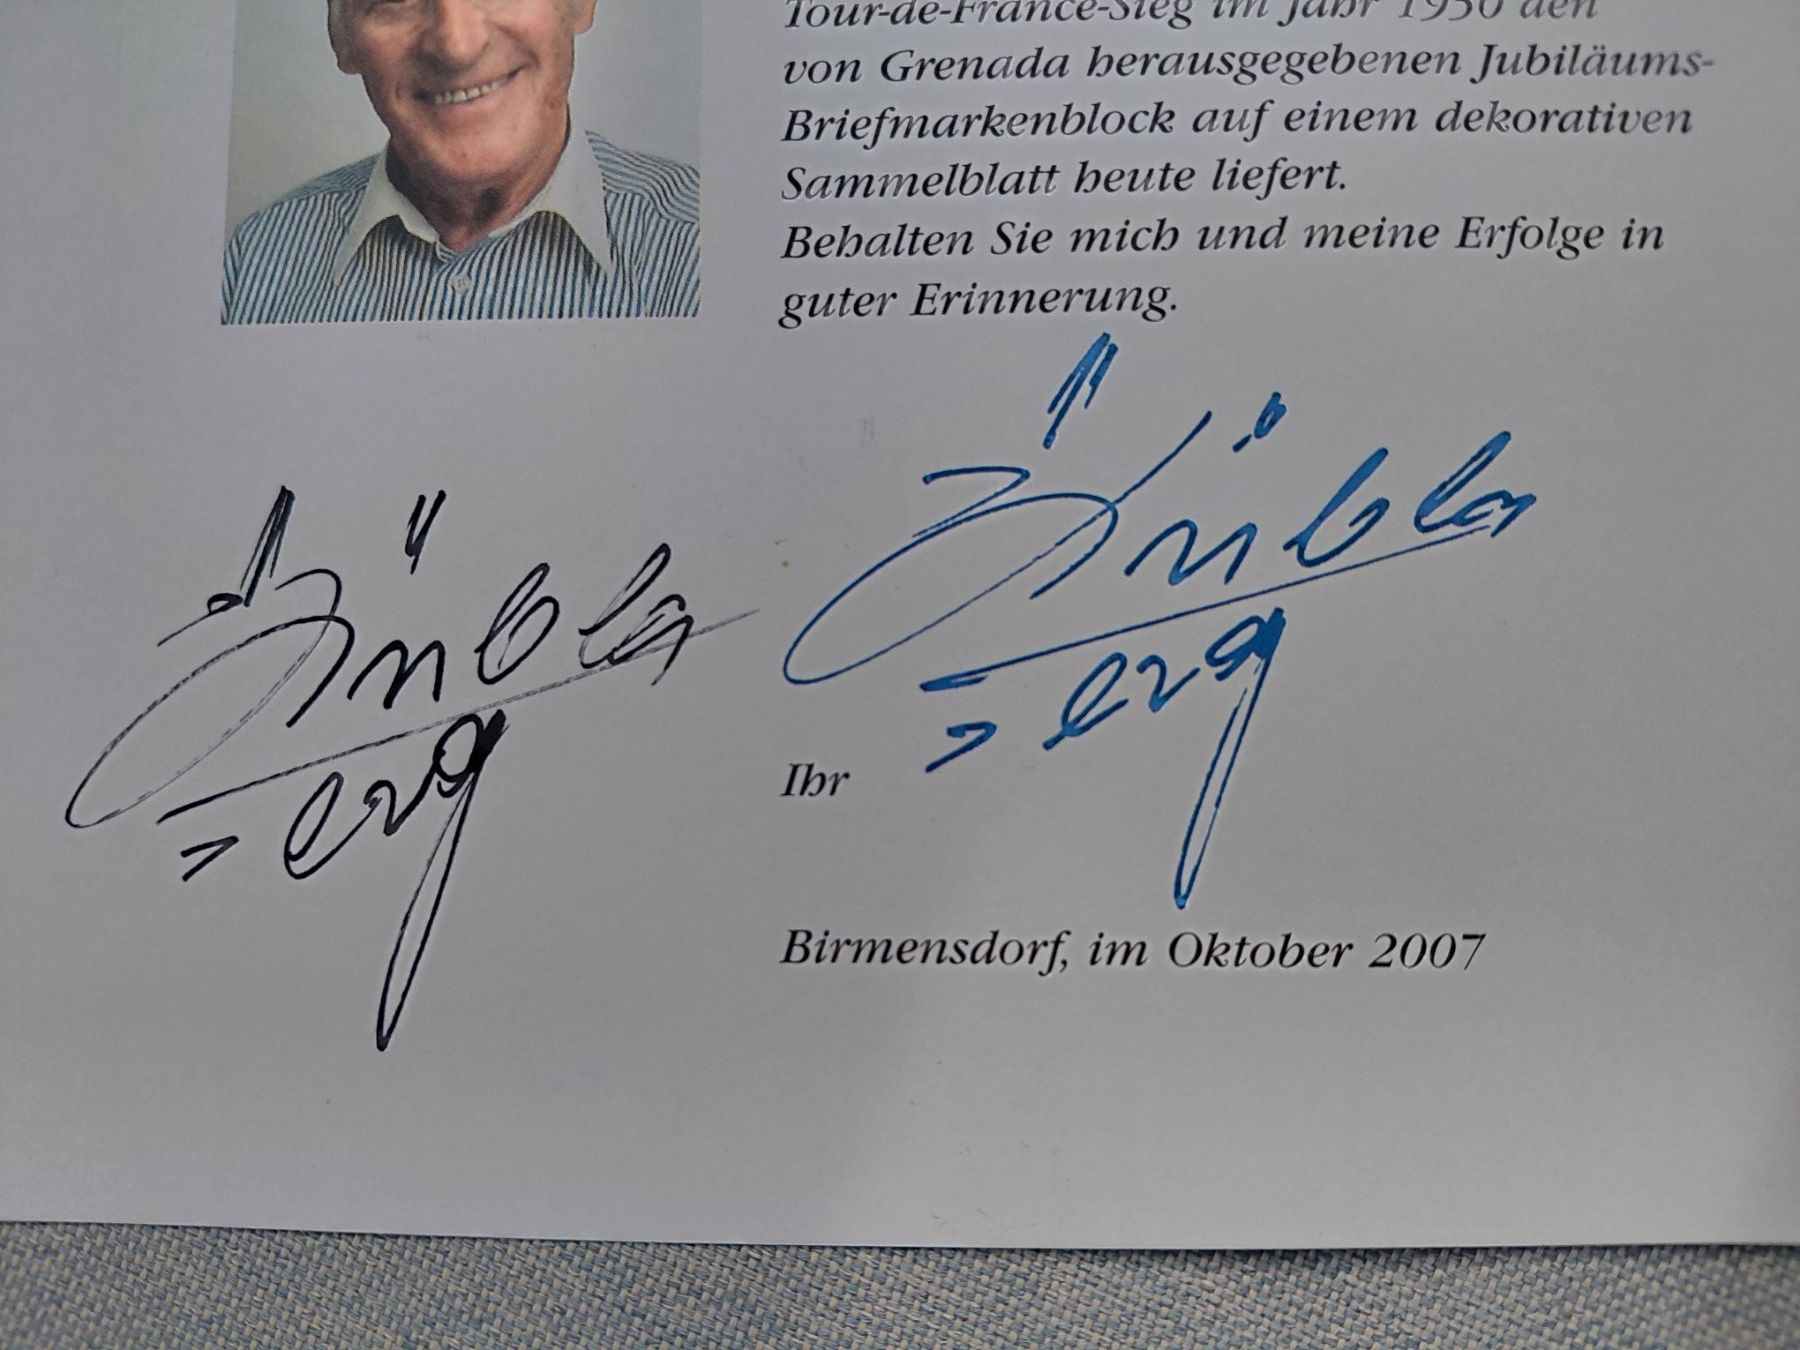 Tour-de-France-Sieg im Jahr 1950 den
von Grenada herausgegebenen Jubiläums-
Briefmarkenblock auf einem dekorativen
Sammelblatt heute liefert.
Behalten Sie mich und meine Erfolge in
guter Erinnerung.
Ihr
Birmensdorf, im Oktober 2007